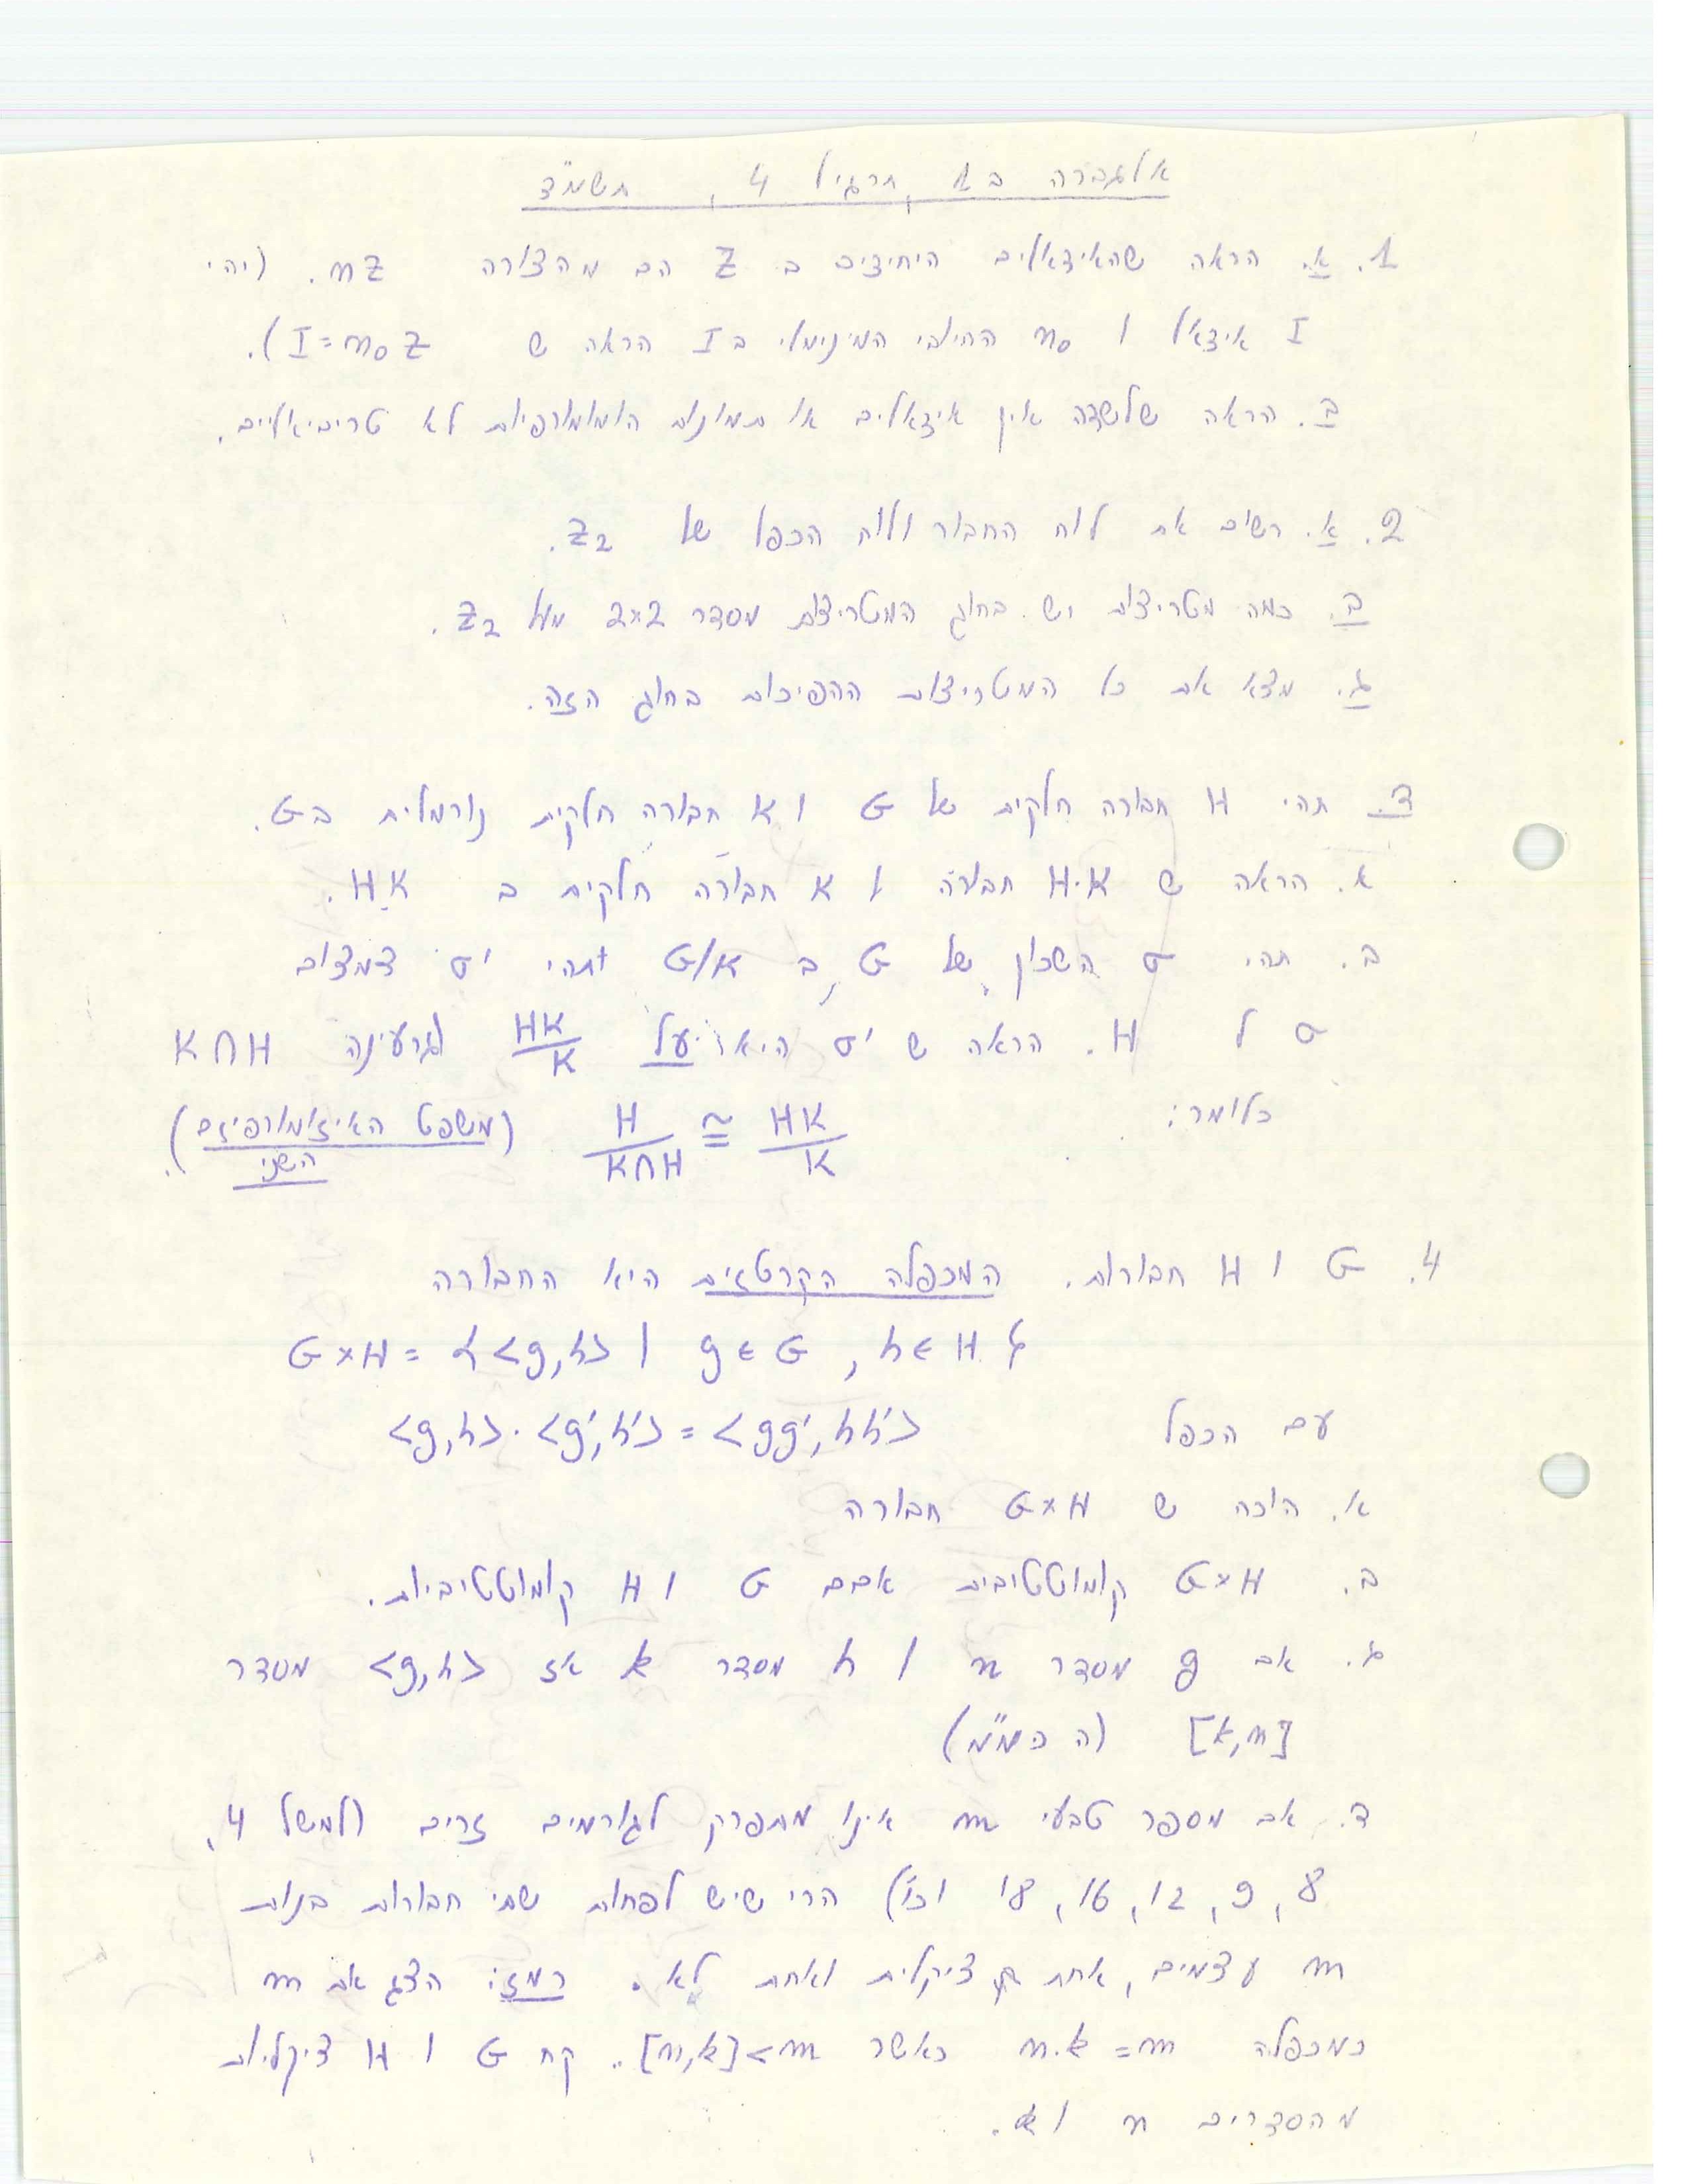 אלגברה ב1, תרגיל 4, תשמ"ד
1. א. הראה שהאידאלים היחידים ב Z הם מהצורה nZ. (יהי
I אידאל ו n₀ החיובי המינימלי ב I הראה ש I=n₀Z).
ב. הראה שלשדה אין אידאלים או תמונות הומומורפיות לא טריביאליים.
2. א. רשום את לוח החבור ולוח הכפל של Z₂.
ב. כמה מטריצות יש בחוג המטריצות מסדר 2x2 מעל Z₂.
ג. מצא את כל המטריצות ההפיכות בחוג הזה.
3. תהי H חבורה חלקית של G ו K חבורה חלקית נורמלית ב G.
א. הראה ש H·K חבורה ו K חבורה חלקית ב HK.
ב. תהי σ השכון של G ב G/K ותהי σ' צמצום
σ ל H. הראה ש σ' היא על HK/K וגרעינה K∩H
כלומר: H/K∩H ≅ HK/K (משפט האיזומורפיזם השני).
4. G ו H חבורות. המכפלה הקרטזית היא החבורה
G×H = {<g,h> | g∈G, h∈H}
עם הכפל <g,h>·<g',h'> = <gg',hh'>
א. הוכח ש G×H חבורה
ב. G×H קומוטטיבית אםם G ו H קומוטטיביות.
ג. אם g מסדר n ו h מסדר k אז <g,h> מסדר
[k,n] (ה כמ"מ)
ד. אם מספר טבעי m אינו מתפרק לגורמים זרים (למשל 4,
8, 9, 12, 16, 18 וכו') הרי שיש לפחות שתי חבורות בנות
m עצמים, אחת ציקלית ואחת לא. רמז: הצג את m
כמכפלה m=n·k כאשר [n,k]<m. קח G ו H ציקליות
מהסדרים n ו k.